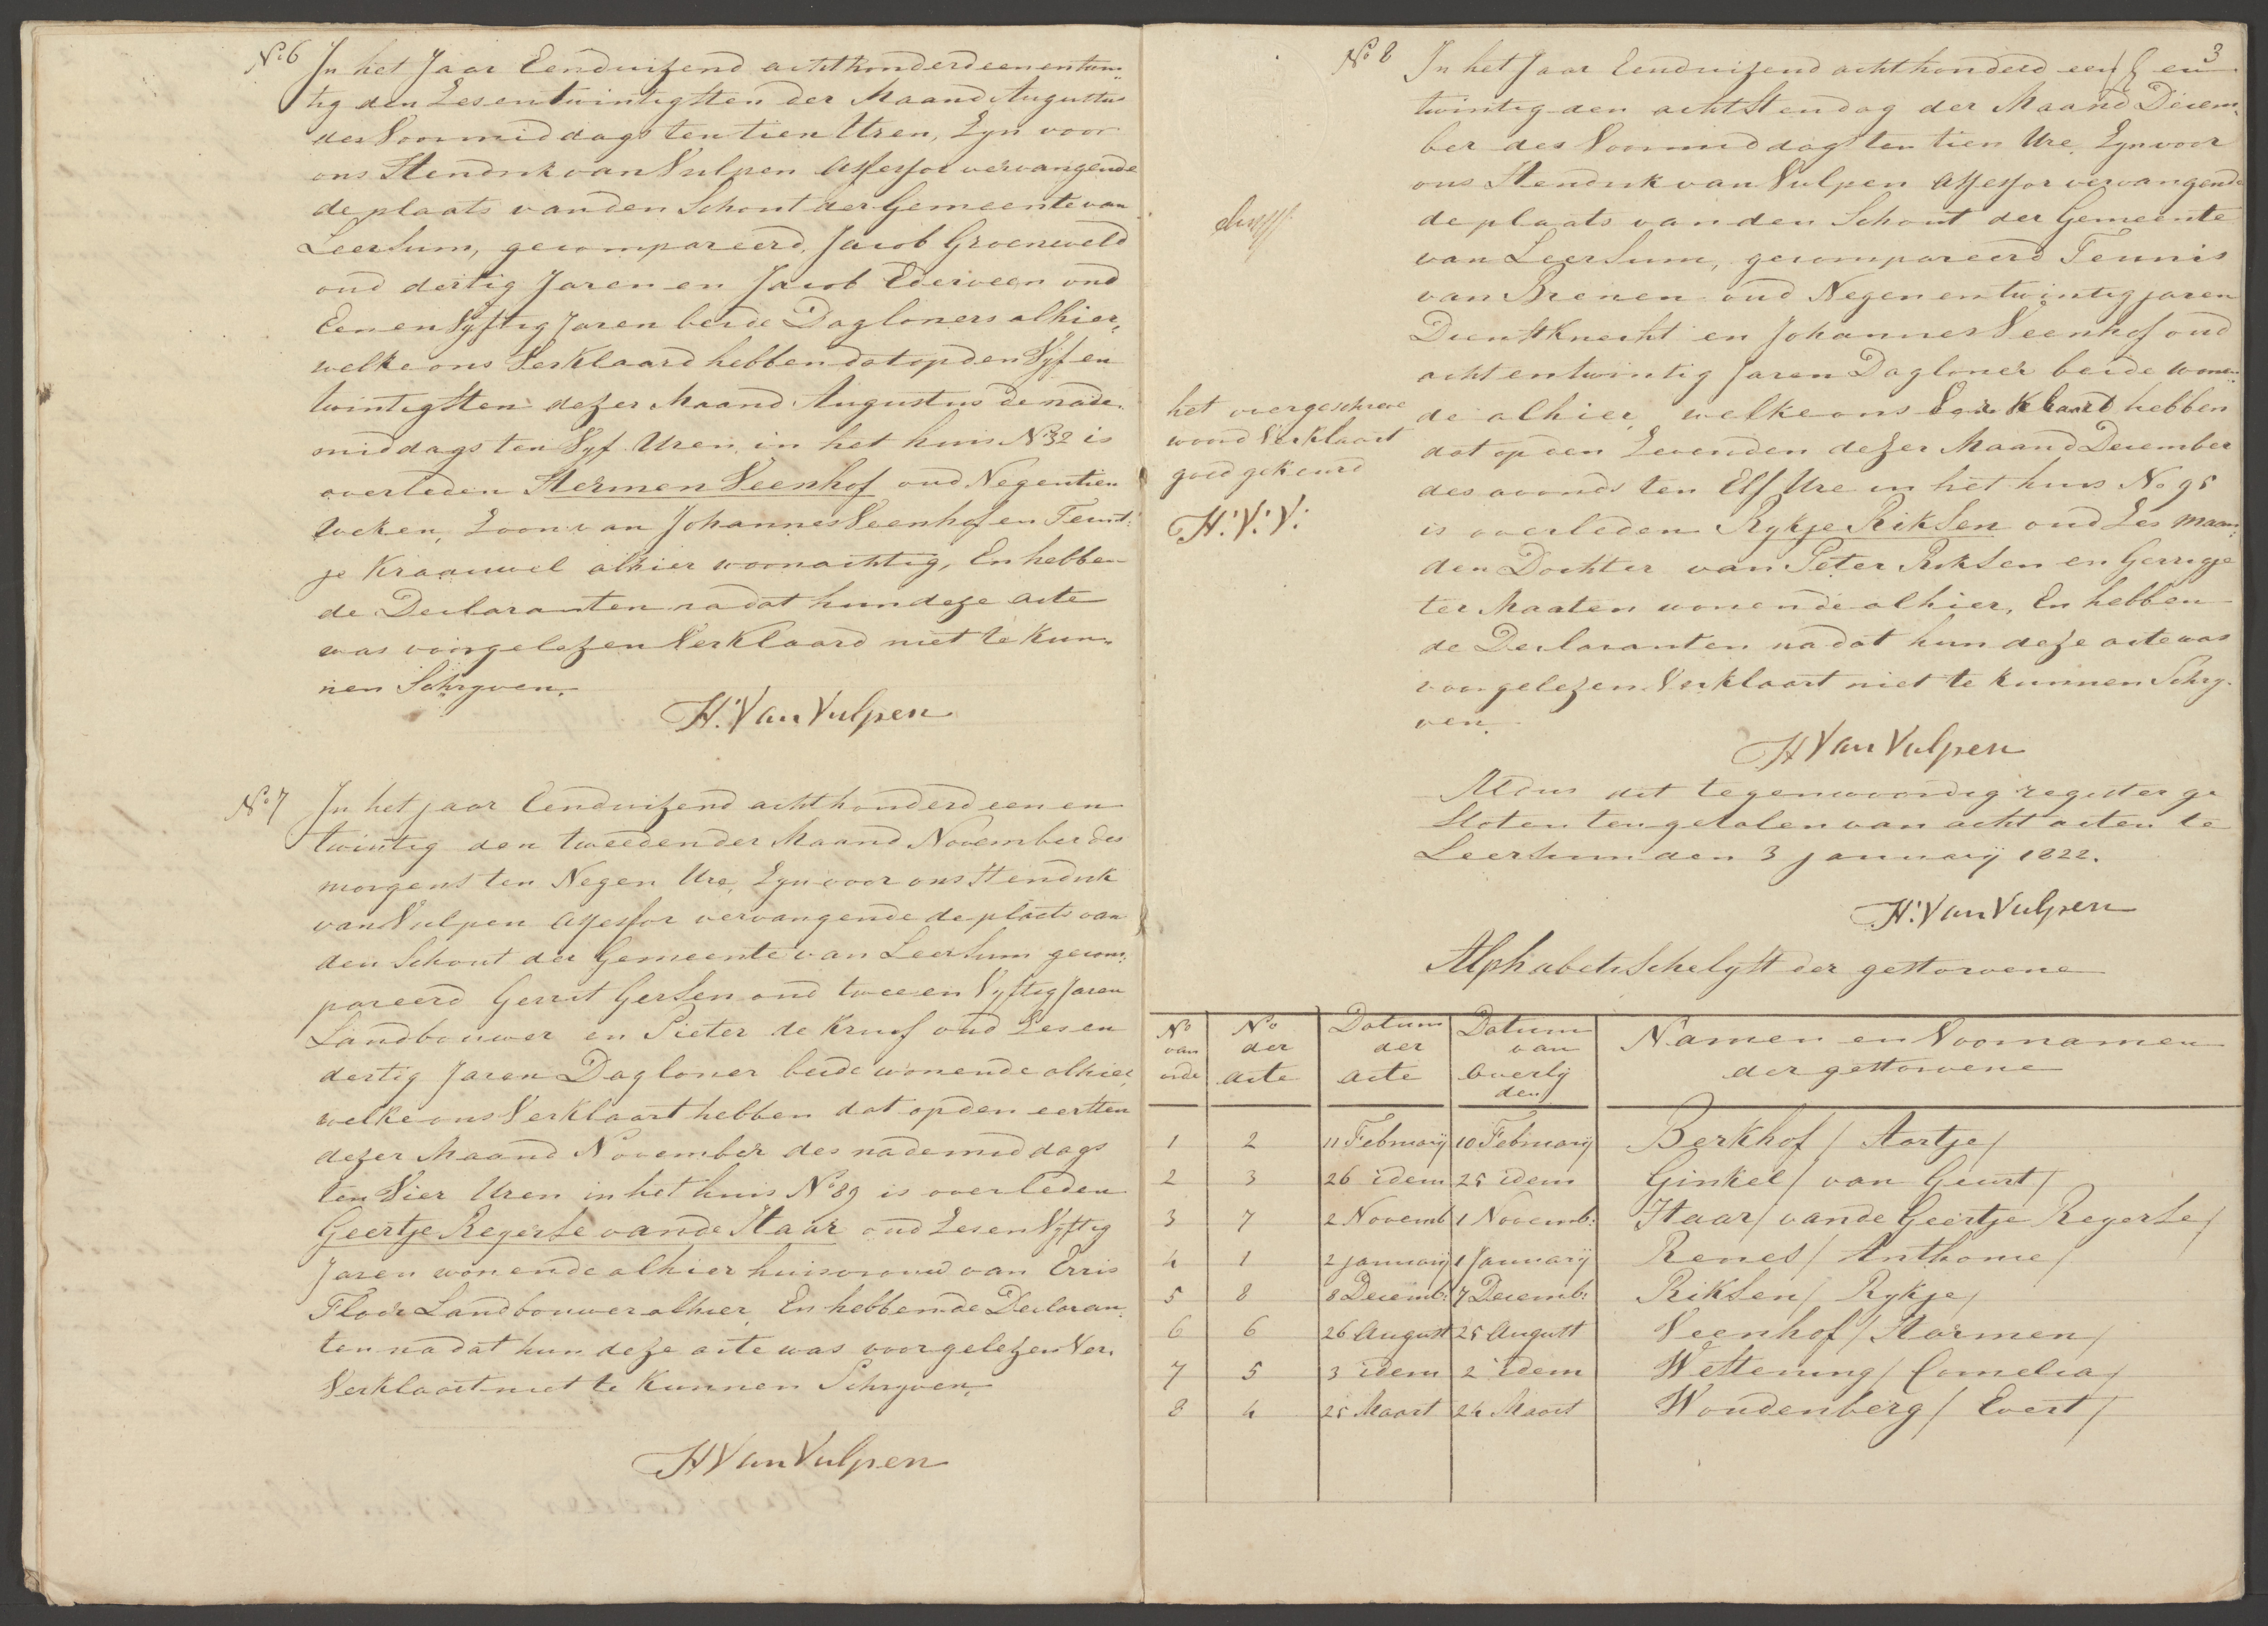 No 6 In het Jaar Eenduizend achthonderd een en twin„
tig den Zesentwintigsten der Maand Augustus
des Voormiddags ten tien Uren, Zyn voor
ons Hendrik van Vulpen Assessor vervangende
de plaats van den Schout der Gemeente van
Leersum, gecompareerd, Jacob Groeneveld
oud dertig Jaren en Jacob Ederveen oud
Een en Vyftig Jaren beide Dagloners alhier,
welke ons Verklaard hebben dat op den Vyf en
twintigsten dezer Maand Augustus de nade„
middags ten Vyf Uren, in het huis No 32 is
overleden Hermen Veenhof oud Negentien
Weken, Zoon van Johannes Veenhof en Teunt„
je Kraauwel alhier woonachtig, En hebben
de Declaranten nadat hun deze acte
was voorgelezen Verklaard niet te Kun„
nen Schryven.
H. Van Vulpen
No 7 In het jaar Eenduizend achthonderd een en
twintig den tweeden der Maand November des
morgens ten Negen Ure, Zyn voor ons Hendrik
van Vulpen Assessor vervangende de plaats van
den Schout der Gemeente van Leersum gecom„
pareerd Gerrit Gersen oud twee en Vyftig Jaren
Landbouwer en Pieter de Kruif oud Zes en
dertig Jaren Dagloner beide wonende alhier,
welke ons Verklaart hebben dat op den eersten
dezer Maand November des nademiddags
ten Vier Uren in het huis No 89 is overleden
Geertje Regerse van de Haar oud Zes en Vyftig
Jaren wonende alhier huisvrouw van Erris
Floor Landbouwer alhier, En hebben de Declaran„
ten nadat hun deze acte was voorgelezen Ver„
Verklaart niet te Kunnen Schryven,
H Van Vulpen
3
No 8 In het Jaar Eenduizend achthonderd een en
twintig den achtsten dag der Maand Decem„
ber des Voormiddags ten tien Ure, Zyn voor
ons Hendrik van Vulpen Assessor vervangende
de plaats van den Schout der Gemeente
van Leersum, gecompareerd Teunis
van Brenen oud Negen en twintig jaren
Dienstknecht en Johannes Veenhof oud
acht en twintig Jaren Dagloner beide wonen„
de alhier, welke ons Verklaart hebben
dat op den Zevenden dezer Maand December
des avonds ten Elf Ure in het huis No 95
is overleden Rykje Riksen oud Zes maan„
den Dochter van Peter Riksen en Gerrigje
ter Maaten wonende alhier, En hebben
de Declaranten nadat hun deze acte was
voorgelezen Verklaart niet te kunnen Schry„
ven.
H Van Vulpen
het overgeschreve
woord Verklaart
goed gekeurd
H. V. V.
Aldus dit tegenwoordig register ge
sloten ten getalen van acht acten te
Leersum den 3 januarij 1822.
H. Van Vulpen
Alphabetische lyst der gestorvene
No van orde No der acte Datum der acte Datum van Overlyden Namen en Voornamen der gestorvene
1 2 11 Februarij 10 Februarij Berkhof / Aartje /
2 3 26 idem 25 idem Ginkel / van Geurt /
3 7 2 Novemb 1 Novemb: Haar / vande Geertje Regerse /
4 1 2 januarij 1 Januarij Renes / Anthonie /
5 8 8 Decemb: 7 Decemb: Riksen / Rykje /
6 6 26 August 25 August Veenhof / Harmen /
7 5 3 idem 2 idem Westening / Cornelia /
8 4 25 Maart 24 Maart Woudenberg / Evert /